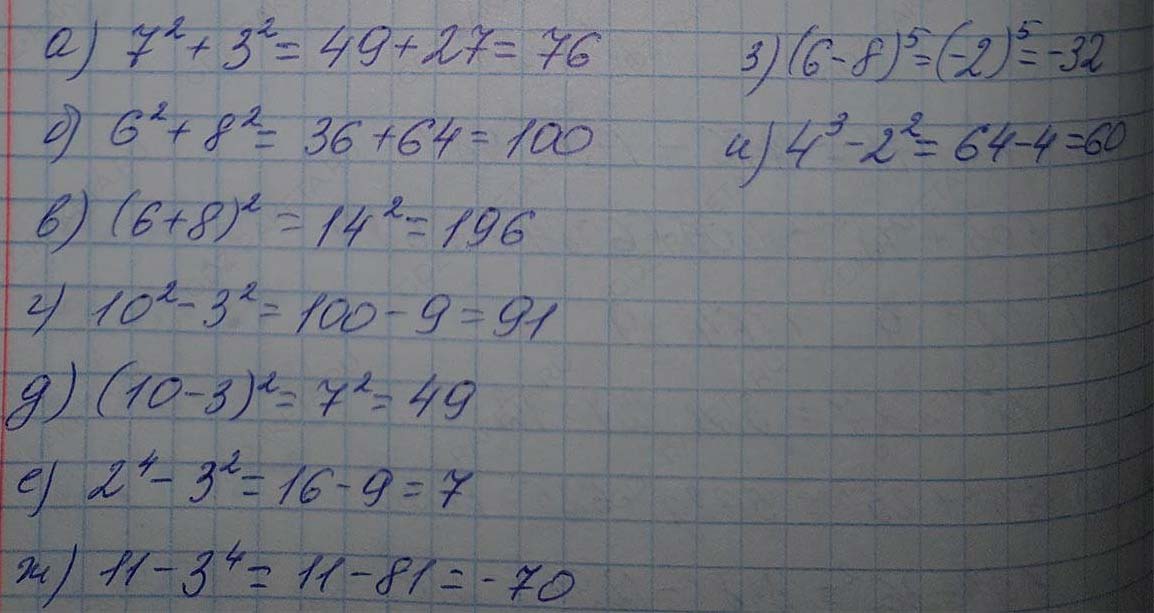 а) 7² + 3² = 49 + 27 = 76
б) 6² + 8² = 36 + 64 = 100
в) (6 + 8)² = 14² = 196
г) 10² - 3² = 100 - 9 = 91
д) (10 - 3)² = 7² = 49
е) 2⁴ - 3² = 16 - 9 = 7
ж) 11 - 3⁴ = 11 - 81 = -70
з) (6 - 8)⁵ = (-2)⁵ = -32
и) 4³ - 2² = 64 - 4 = 60